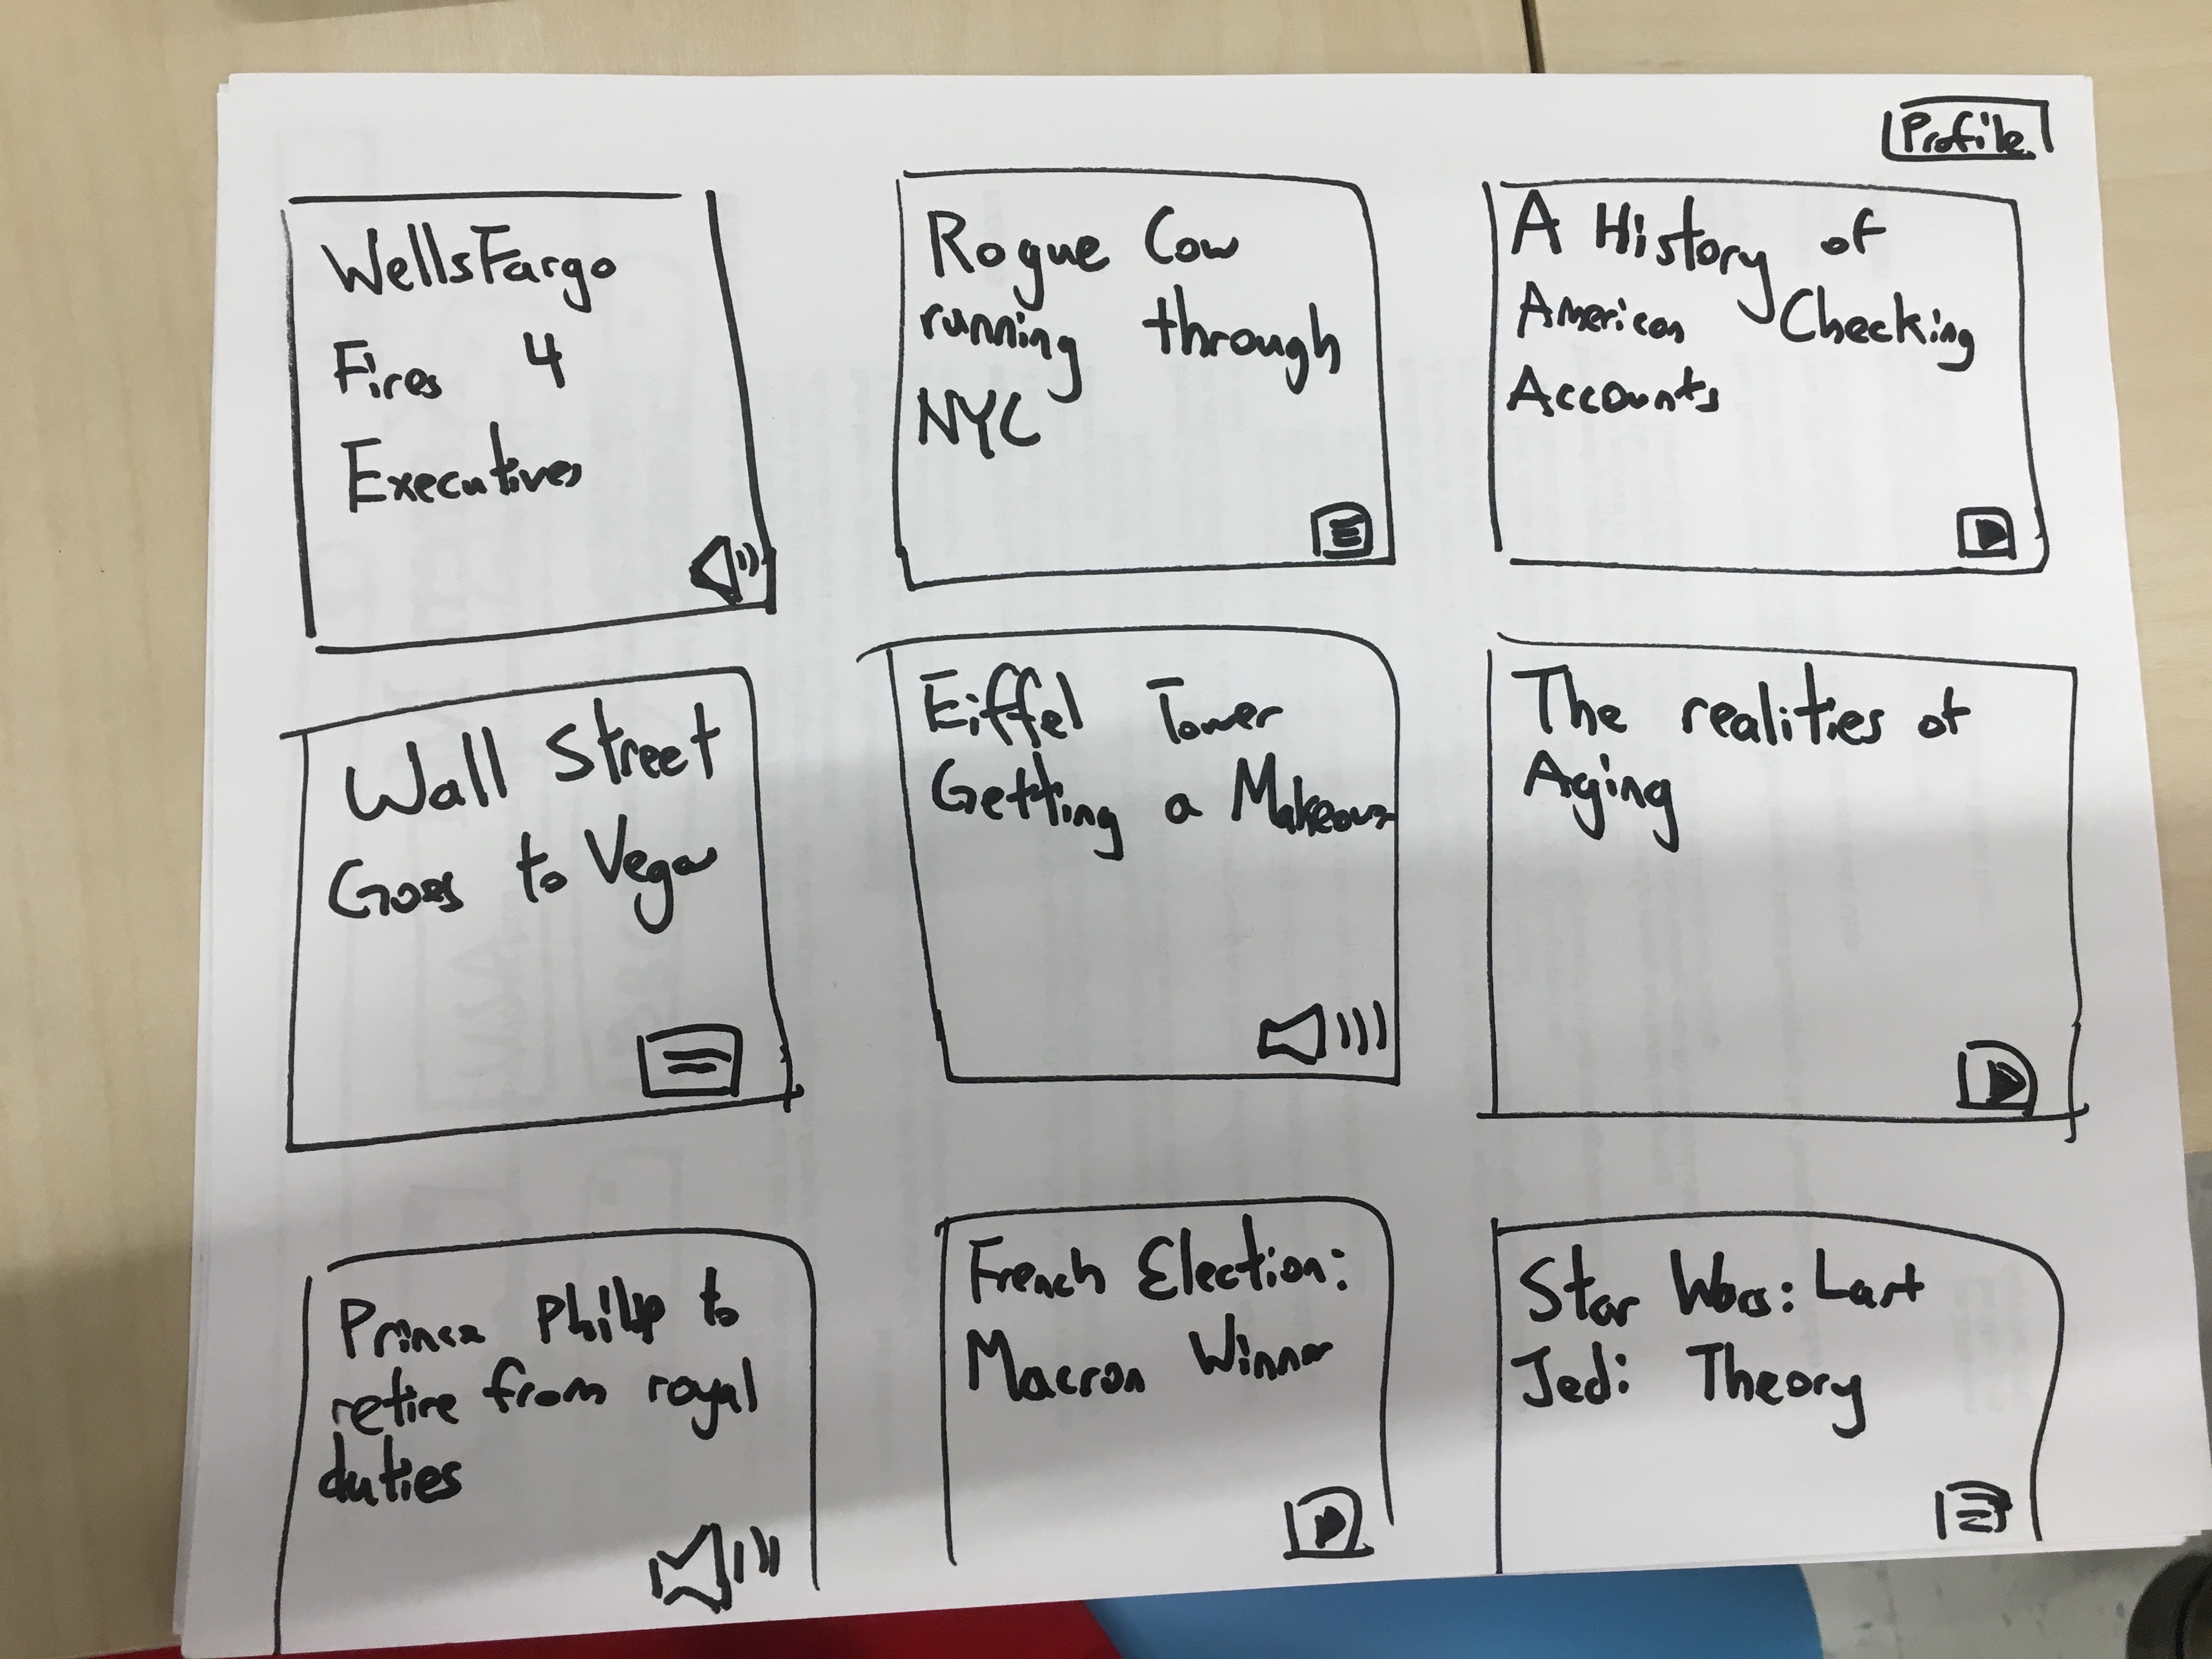 Profile
WellsFargo
Fires 4
Executives
Rogue Cow
running through
NYC
A History of
American Checking
Accounts
Wall Street
Goes to Vegas
Eiffel Tower
Getting a Makeover
The realities of
Aging
Prince Philip to
retire from royal
duties
French Election:
Macron Winner
Star Wars: Last
Jedi Theory